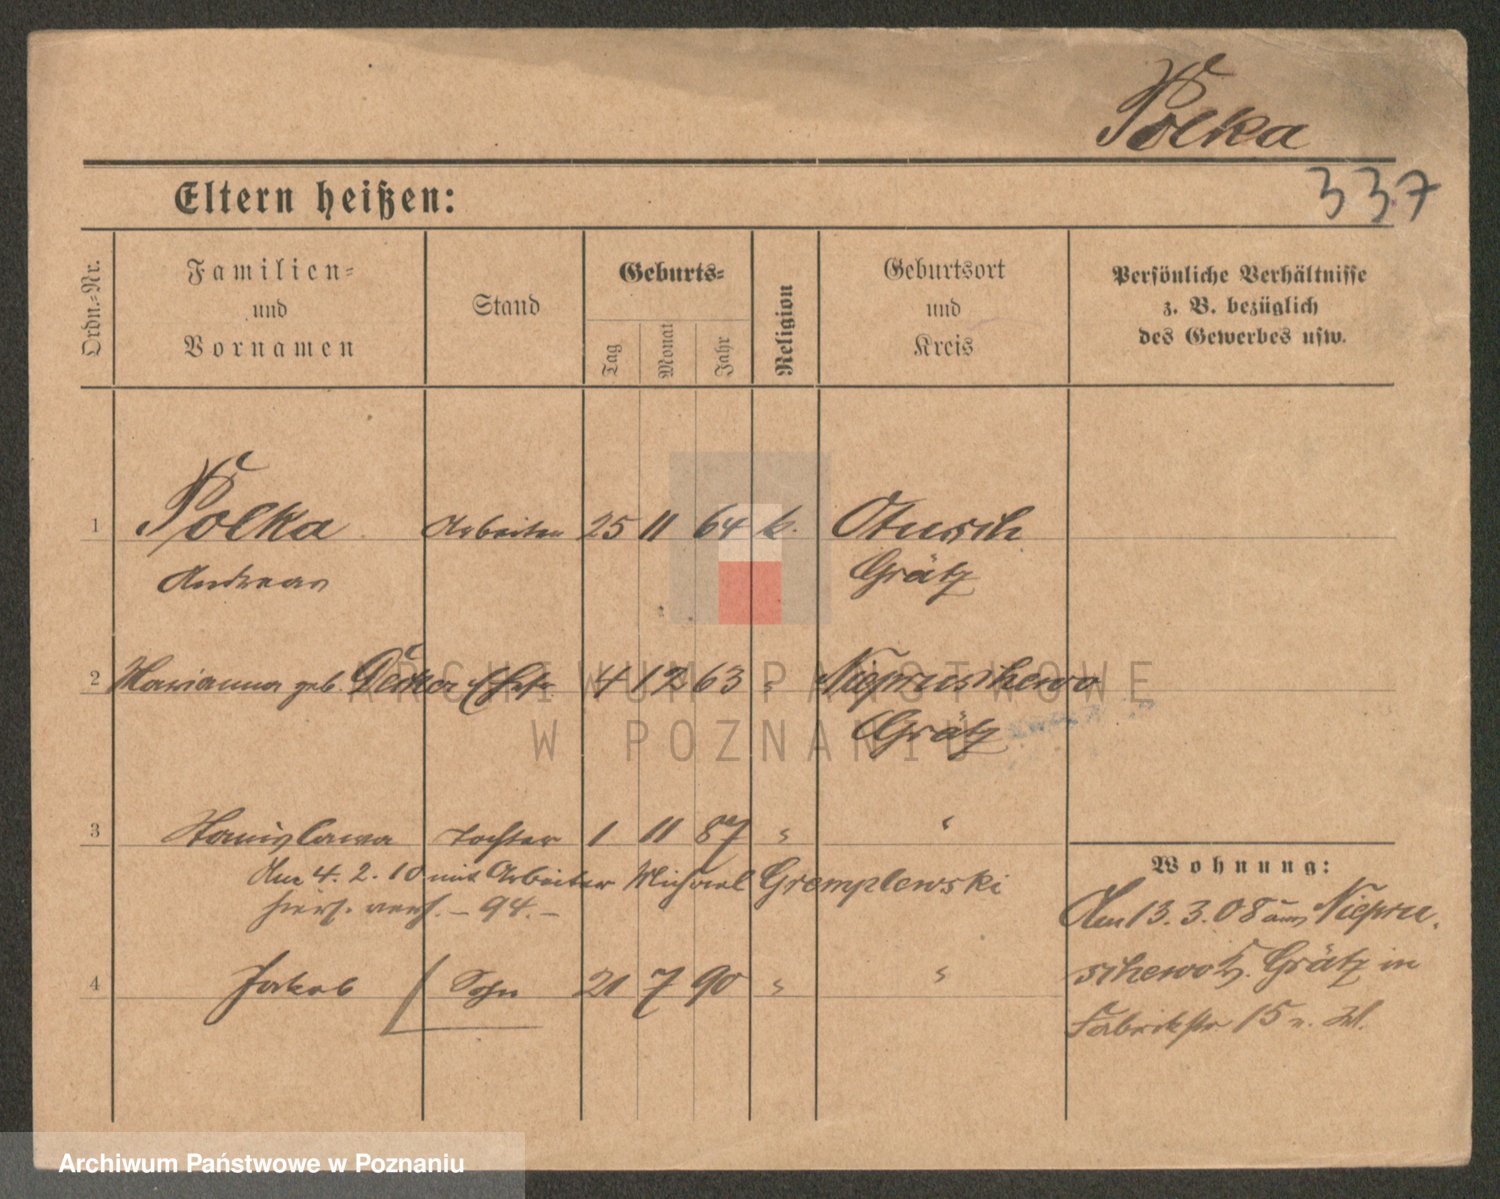 Polka
337
Eltern heißen:
Ordn.-Nr.
Familien-
und
Vornamen
Stand
Geburts-
Tag
Monat
Jahr
Religion
Geburtsort
und
Kreis
Persönliche Verhältnisse
z. B. bezüglich
des Gewerbes usw.
1 Polka Arbeiter 25 11 64 k. Otusch
Andreas Grätz
2 Marianna geb. Ehefr. 4 12 63 " Niepruschewo
Grätz
3 Stanislawa Tochter 1 11 87 " "
Am 4. 2. 10 mit Arbeiter Michael Gremplewski
hiers. verh. – 94. –
4 Jakob Sohn 21 7 90 " "
Wohnung:
Am 13. 3. 08 aus Niepru-
schewo Grätz in
Fabrikstr 15
ARCHIWUM PAŃSTWOWE
W POZNANIU
Archiwum Państwowe w Poznaniu